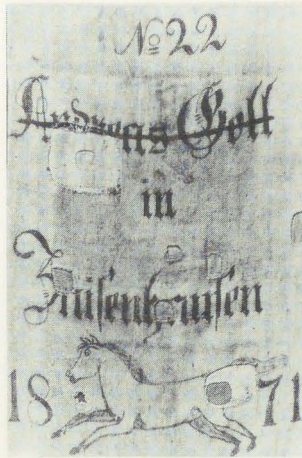 No 22
Andreas Goll
in
Zaisenhausen
18 71